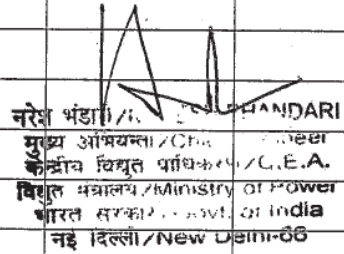 नरेश भंडारी/N. BHANDARI
मुख्य अभियन्ता/Chief Engineer
केन्द्रीय विद्युत प्राधिकरण/C.E.A.
विद्युत मंत्रालय/Ministry of Power
भारत सरकार/Govt. of India
नई दिल्ली/New Delhi-66